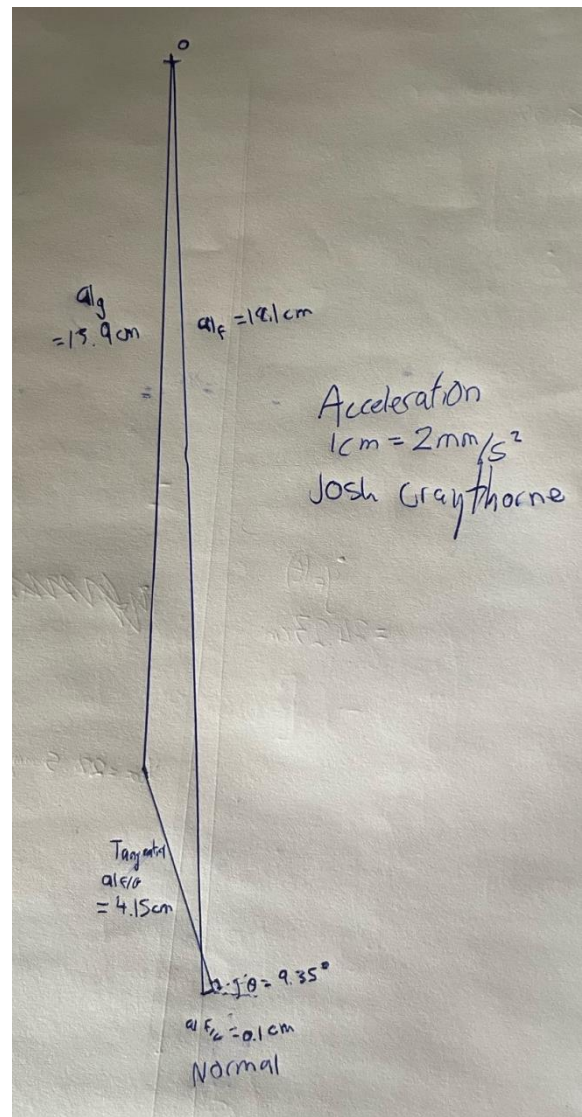 O
a|g
=15.9cm
a|f = 18.1cm
Acceleration
1cm = 2mm/s²
Josh Craythorne
Tangential
a|F/G
= 4.15cm
θ = 9.35°
= 0.1cm
Normal